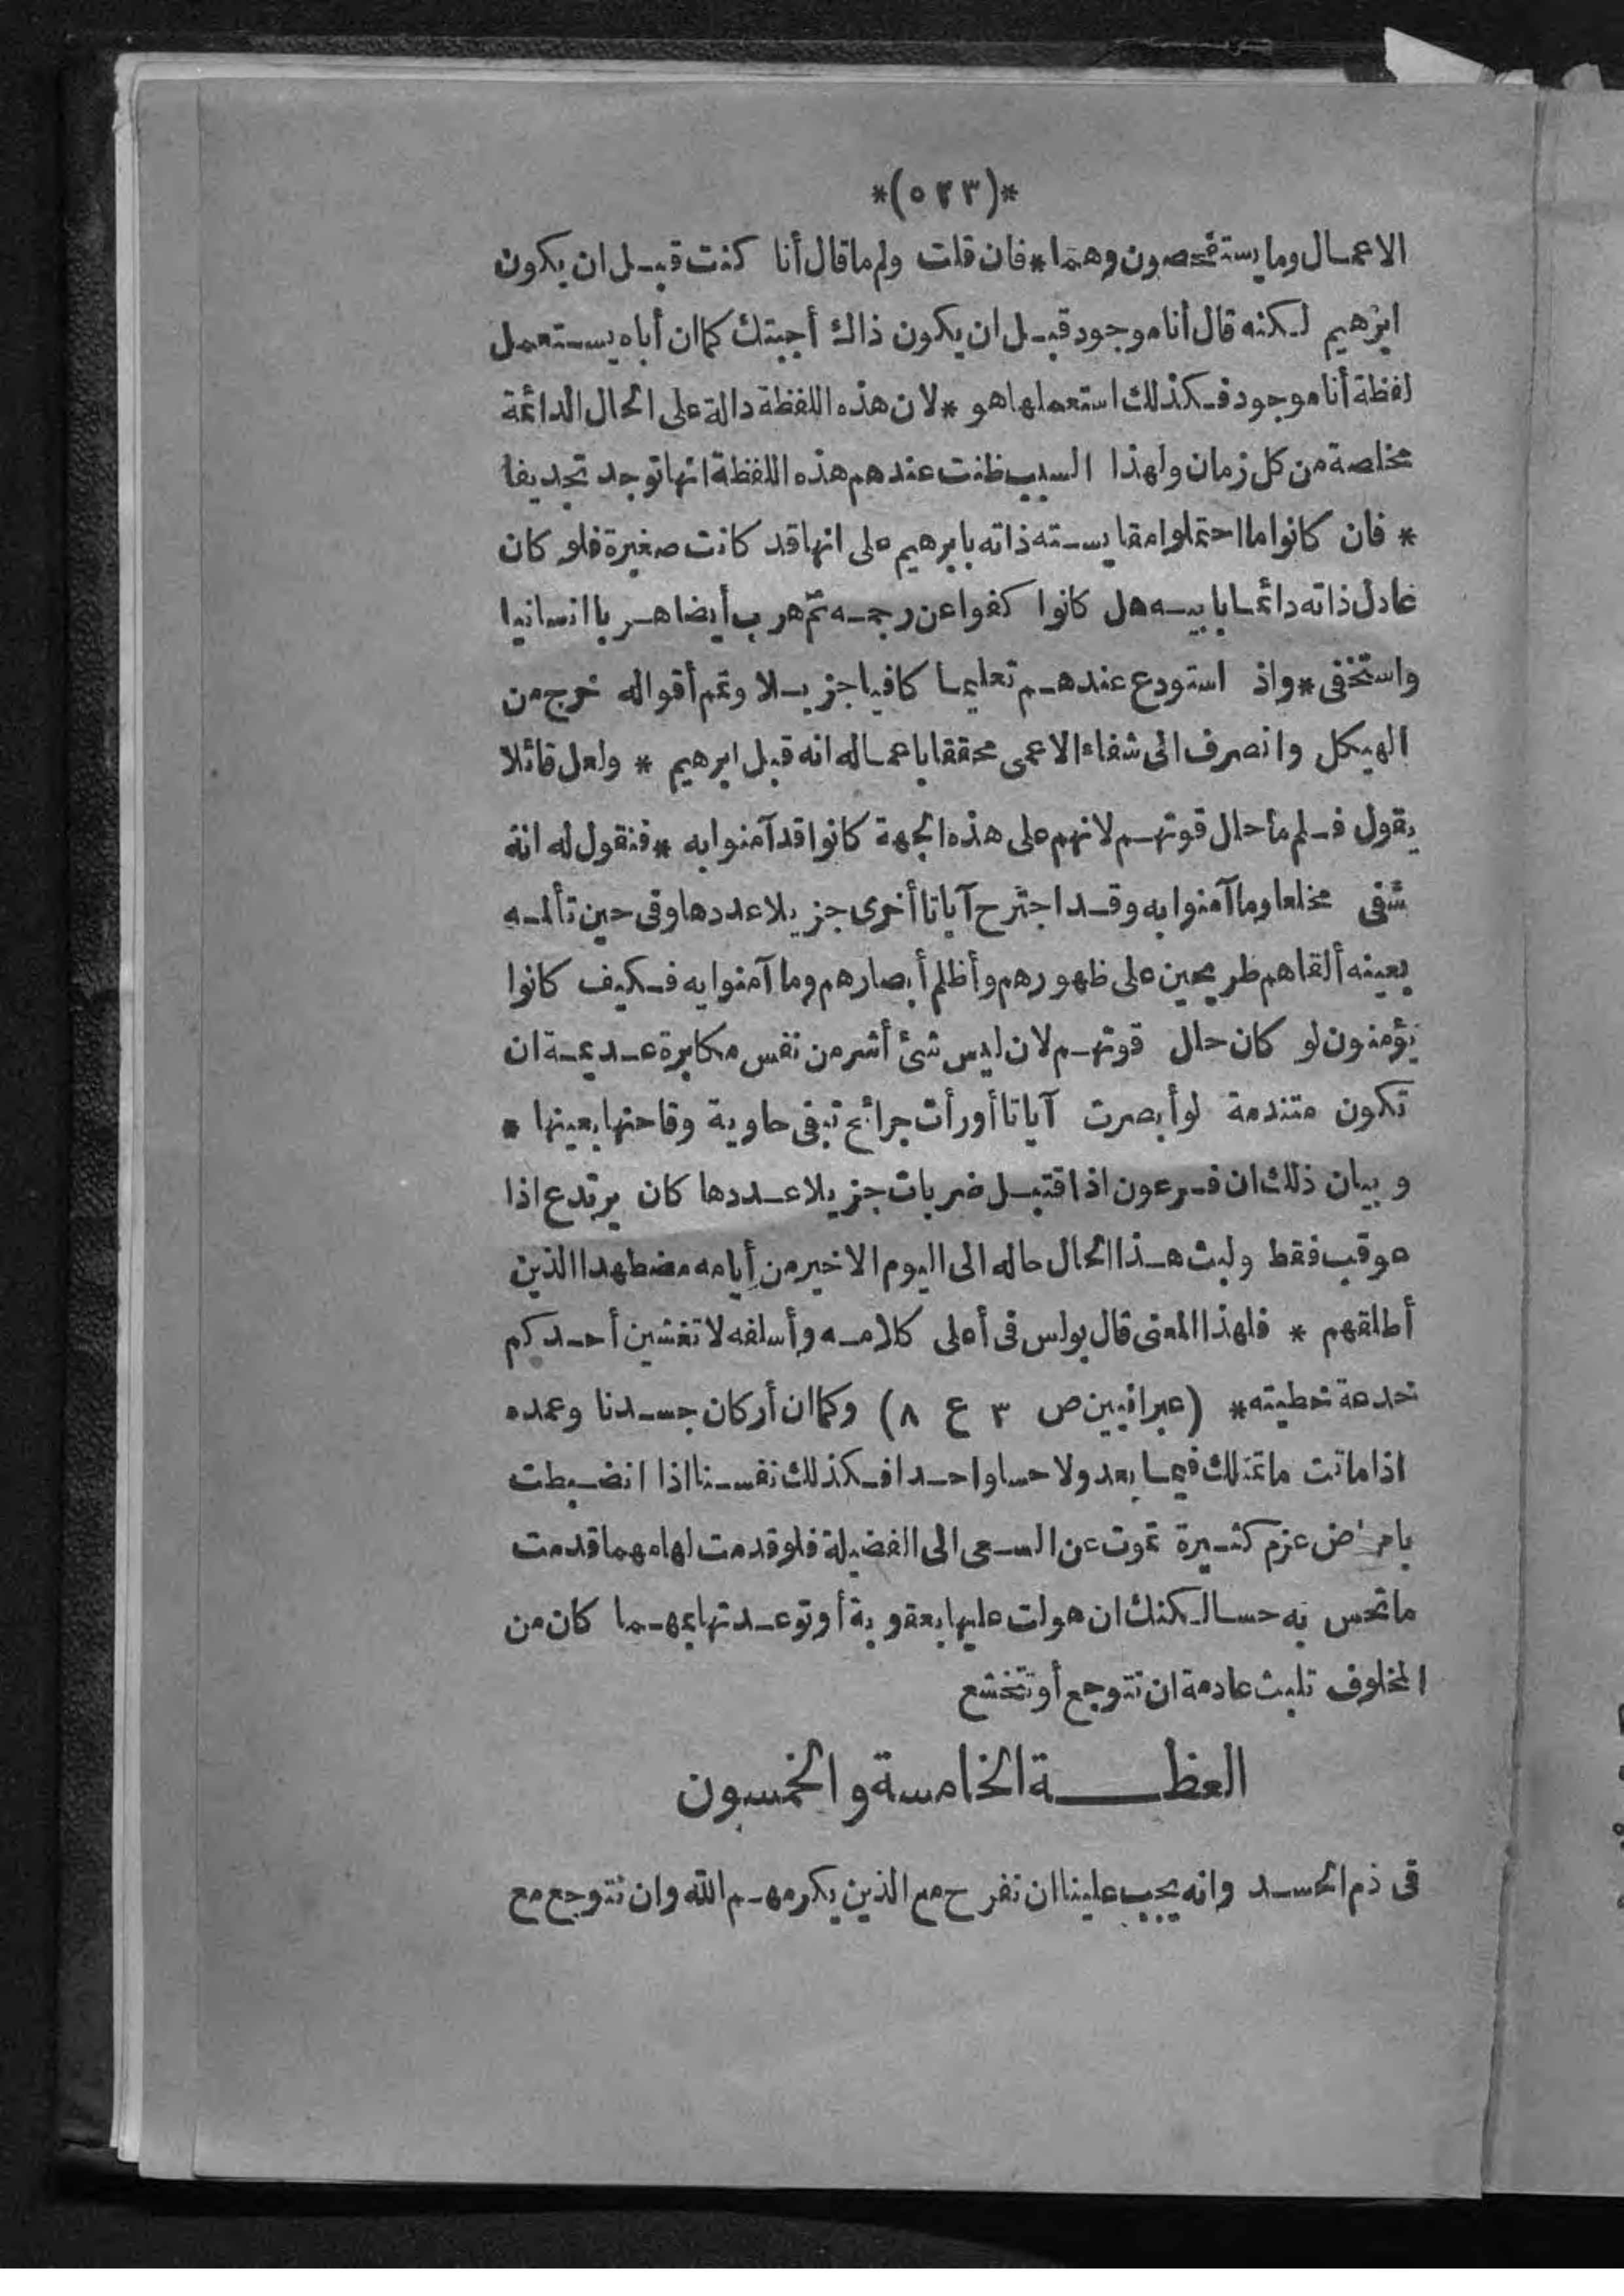 *(٥٢٣)*
الاعمال وما يستفحصون وهما * فان قلت ولم ما قال أنا كنت قبل ان يكون
ابرهيم لكنه قال أنا موجود قبل ان يكون ذاك أجبتك كما ان أباه يستعمل
لفظة أنا موجود فكذلك استعملها هو * لان هذه اللفظة دالة على الحال الدائمة
مخلصة من كل زمان ولهذا السبب ظنت عندهم هذه اللفظة انها توجد تجديفا
* فان كانوا ما احتملوا مقايسته ذاته بابرهيم على انها قد كانت صغيرة فلو كان
عادل ذاته دائما بابيه هل كانوا كفوا عن رجمه ثم هرب أيضا هربا انسانيا
واستخفى * واذ استودع عندهم تعليما كافيا جزيلا وتمم أقواله خرج من
الهيكل وانصرف الى شفاء الاعمى محققا باعماله انه قبل ابرهيم * ولعل قائلا
يقول فلم ما حال قوتهم لانهم على هذه الجهة كانوا قد آمنوا به * فنقول له انه
شفى مخلعا وما آمنوا به وقد اجترح آياتا أخرى جزيلا عددها وفى حين تألمه
بعينه ألقاهم طريحين على ظهورهم وأظلم أبصارهم وما آمنوا به فكيف كانوا
يؤمنون لو كان حال قوتهم لان ليس شئ أشر من نفس مكابرة عديمة ان
تكون متندمة لو أبصرت آياتا أو رأت جرائح تبقى حاوية وقاحتها بعينها *
وبيان ذلك ان فرعون اذا اقتبل ضربات جزيلا عددها كان يرتدع اذا
عوقب فقط ولبث هذا الحال حاله الى اليوم الاخير من أيامه مضطهدا الذين
أطلقهم * فلهذا المعنى قال بولس فى أعلى كلامه وأسلفه لا تغشين أحدكم
خدعة خطيته * (عبرانيين ص ٣ ع ٨) وكما ان أركان جسدنا وعمده
اذا ماتت ما تمتلك فيما بعد ولا حسا واحدا فكذلك نفسنا اذا انضبطت
بامراض عزم كثيرة تموت عن السعى الى الفضيلة فلو قدمت لها مهما قدمت
ما تحس به حسا لكنك ان هولت عليها بعقوبة أو توعدتها بمهما كان من
المخلوف تلبث عادمة ان تتوجع أو تتخشع
العظة الخامسة والخمسون
فى ذم الحسد وانه يجب علينا ان نفرح مع الذين يكرمهم الله وان نتوجع مع